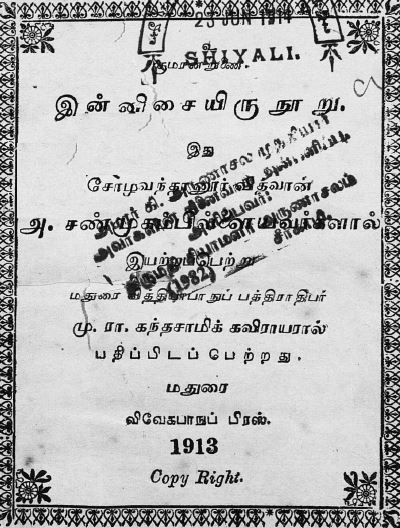 23 JUN 1914
SHIYALI.
இன்னிசையிருநூறு.
இது
சோழவந்தானூர் வித்வான்
அ. சண்முகம்பிள்ளையவர்களால்
இயற்றப்பெற்று
மதுரை வித்தியாபாநுப் பத்திராதிபர்
மு. ரா. கந்தசாமிக் கவிராயரால்
பதிப்பிடப்பெற்றது.
மதுரை
விவேகபாநுப் பிரஸ்.
1913
Copy Right.
அமரர் கி. அருணாசல முதலியார்
அவர்களின் நினைவாக
அளிப்பவர்:
அருணாசலம்
(1982)
சீர்காழி.